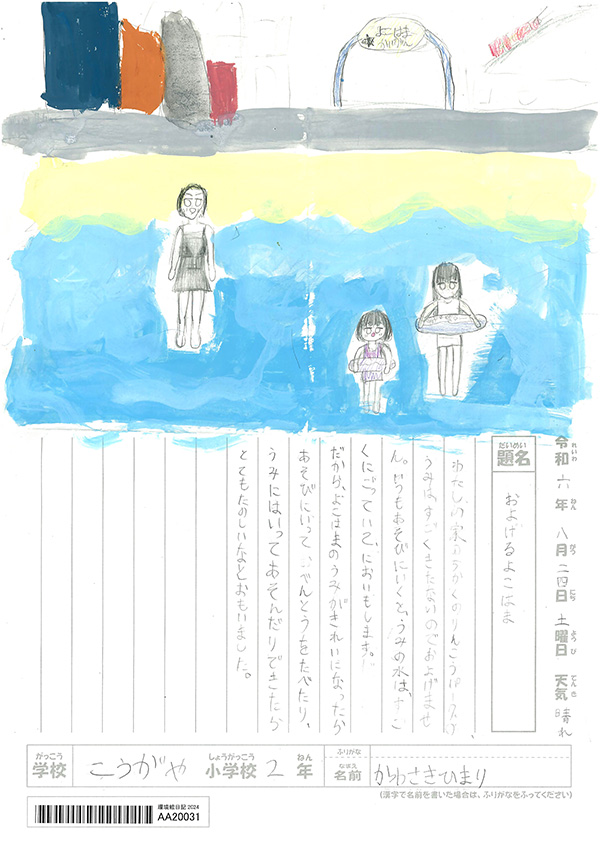 よこはま
令和 六 年 八 月 二四 日 土 曜日 天気 晴れ
れいわ ねん がつ にち ようび てんき
だいめい
題名
およげるよこはま
わたしの家のちかくのりんこうパークは、
うみは、すごくきたないのでおよげませ
ん。いつもあそびにいくと、うみの水は、すご
くにごっていて、においもします。
だから、よこはまのうみがきれいになったら
あそびにいって、おべんとうをたべたり、
うみにはいってあそんだりできたら
とてもたのしいなとおもいました。
がっこう
学校
こうがや
しょうがっこう
小学校
2
ねん
年
ふりがな
なまえ
名前
かわさきひまり
(漢字で名前を書いた場合は、ふりがなをふってください)
環境絵日記 2024
AA20031